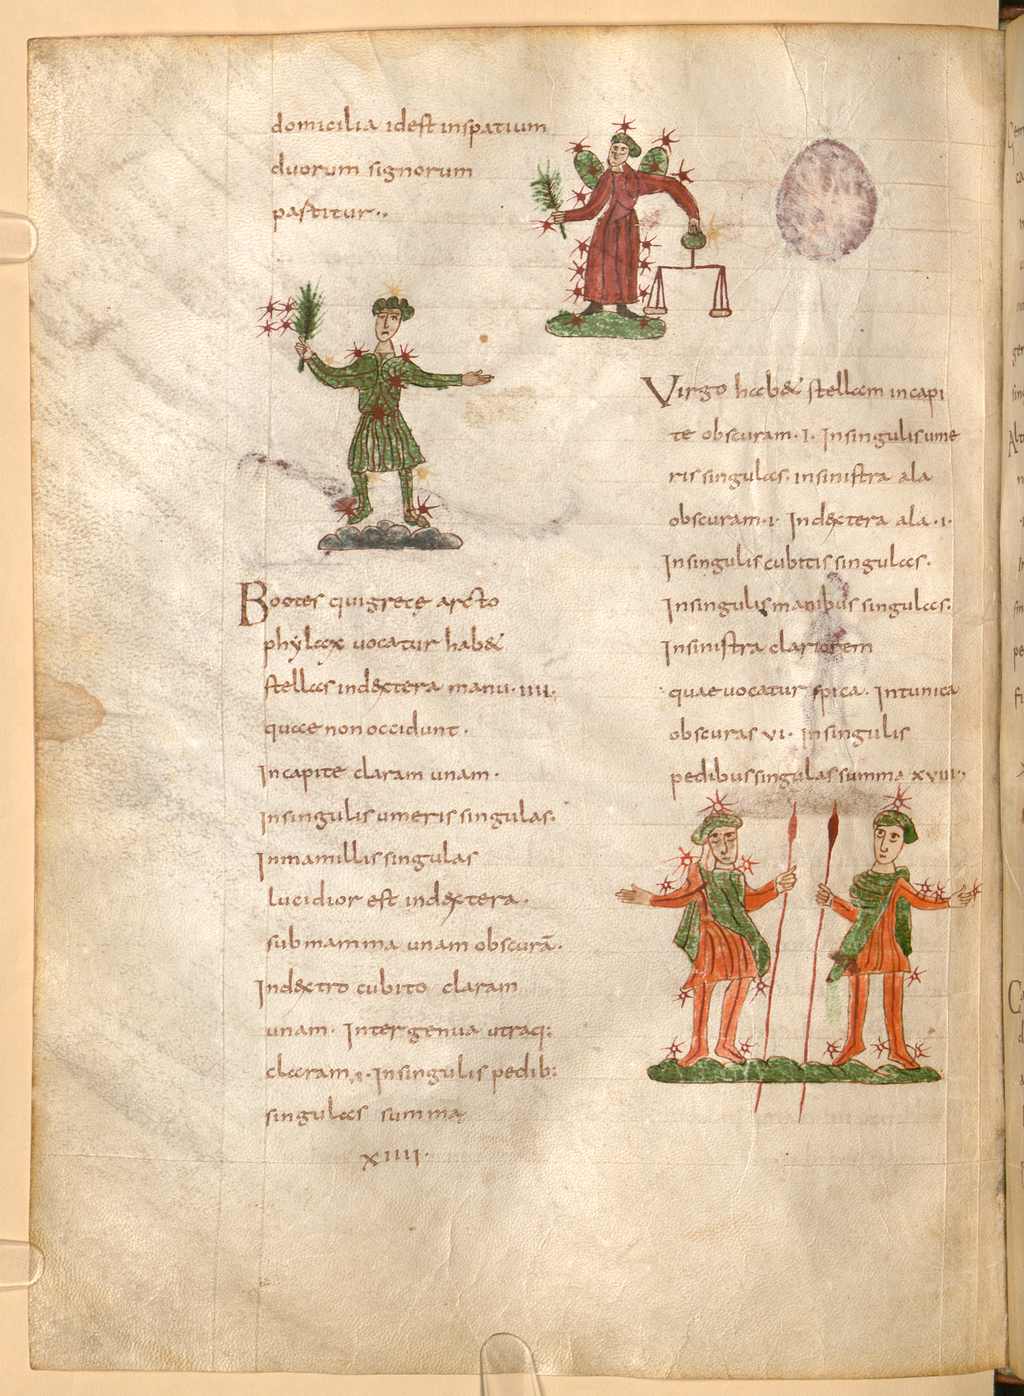 domicilia idest inspatium
duorum signorum
partitur··
Bootes qui grece arcto
phylax vocatur hab&
stellas indextera manu·IIII·
quae non occidunt·
Incapite claram unam·
Insingulis umeris singulas·
Inmamillis singulas
lucidior est indextera·
submamma unam obscurā·
Indextro cubito claram
unam· Inter genua utraq:
claram·Insingulis pedib:
singulas summa
XIIII·
Virgo hab& stellam incapi
te obscuram·I· Insingulis ume
ris singulas· insinistra ala
obscuram·I· Indextera ala·I·
Insingulis cubitis singulas·
Insingulis manibus singulas·
Insinistra clariorem
quae vocatur spica· Intunica
obscuras VI· Insingulis
pedibus singulas summa XVIII·